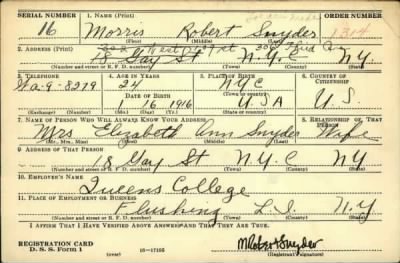 SERIAL NUMBER 1. NAME (Print) ORDER NUMBER
16 Morris Robert Snyder 1314
(First) (Middle) (Last)
2. ADDRESS (Print)
18 Gay St N.Y.C. N.Y.
(Number and street or R. F. D. number) (Town) (County) (State)
3. TELEPHONE 4. AGE IN YEARS 5. PLACE OF BIRTH 6. COUNTRY OF CITIZENSHIP
Wa-9-8279 24 NYC
DATE OF BIRTH (Town or county)
1 16 1916 USA U.S.
(Exchange) (Number) (Mo.) (Day) (Yr.) (State or country)
7. NAME OF PERSON WHO WILL ALWAYS KNOW YOUR ADDRESS 8. RELATIONSHIP OF THAT PERSON
Mrs Elizabeth Ann Snyder Wife
(Mr., Mrs., Miss) (First) (Middle) (Last)
9. ADDRESS OF THAT PERSON
18 Gay St N.Y.C NY
(Number and street or R. F. D. number) (Town) (County) (State)
10. EMPLOYER'S NAME
Queens College
11. PLACE OF EMPLOYMENT OR BUSINESS
Flushing L.I. N.Y
(Number and street or R. F. D. number) (Town) (County) (State)
I AFFIRM THAT I HAVE VERIFIED ABOVE ANSWERS AND THAT THEY ARE TRUE.
REGISTRATION CARD
D. S. S. Form 1 (over) 16—17105 M Robert Snyder
(Registrant's signature)